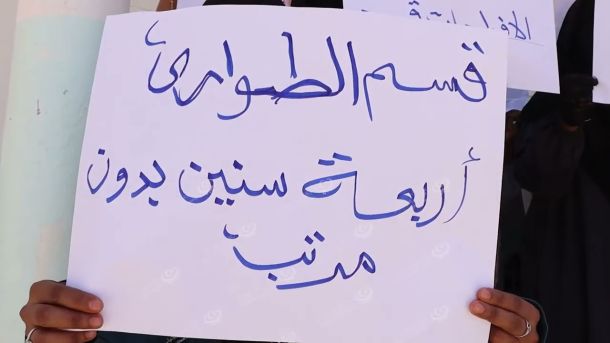 قسم الطوارئ
أربعة سنين بدون
مرتب